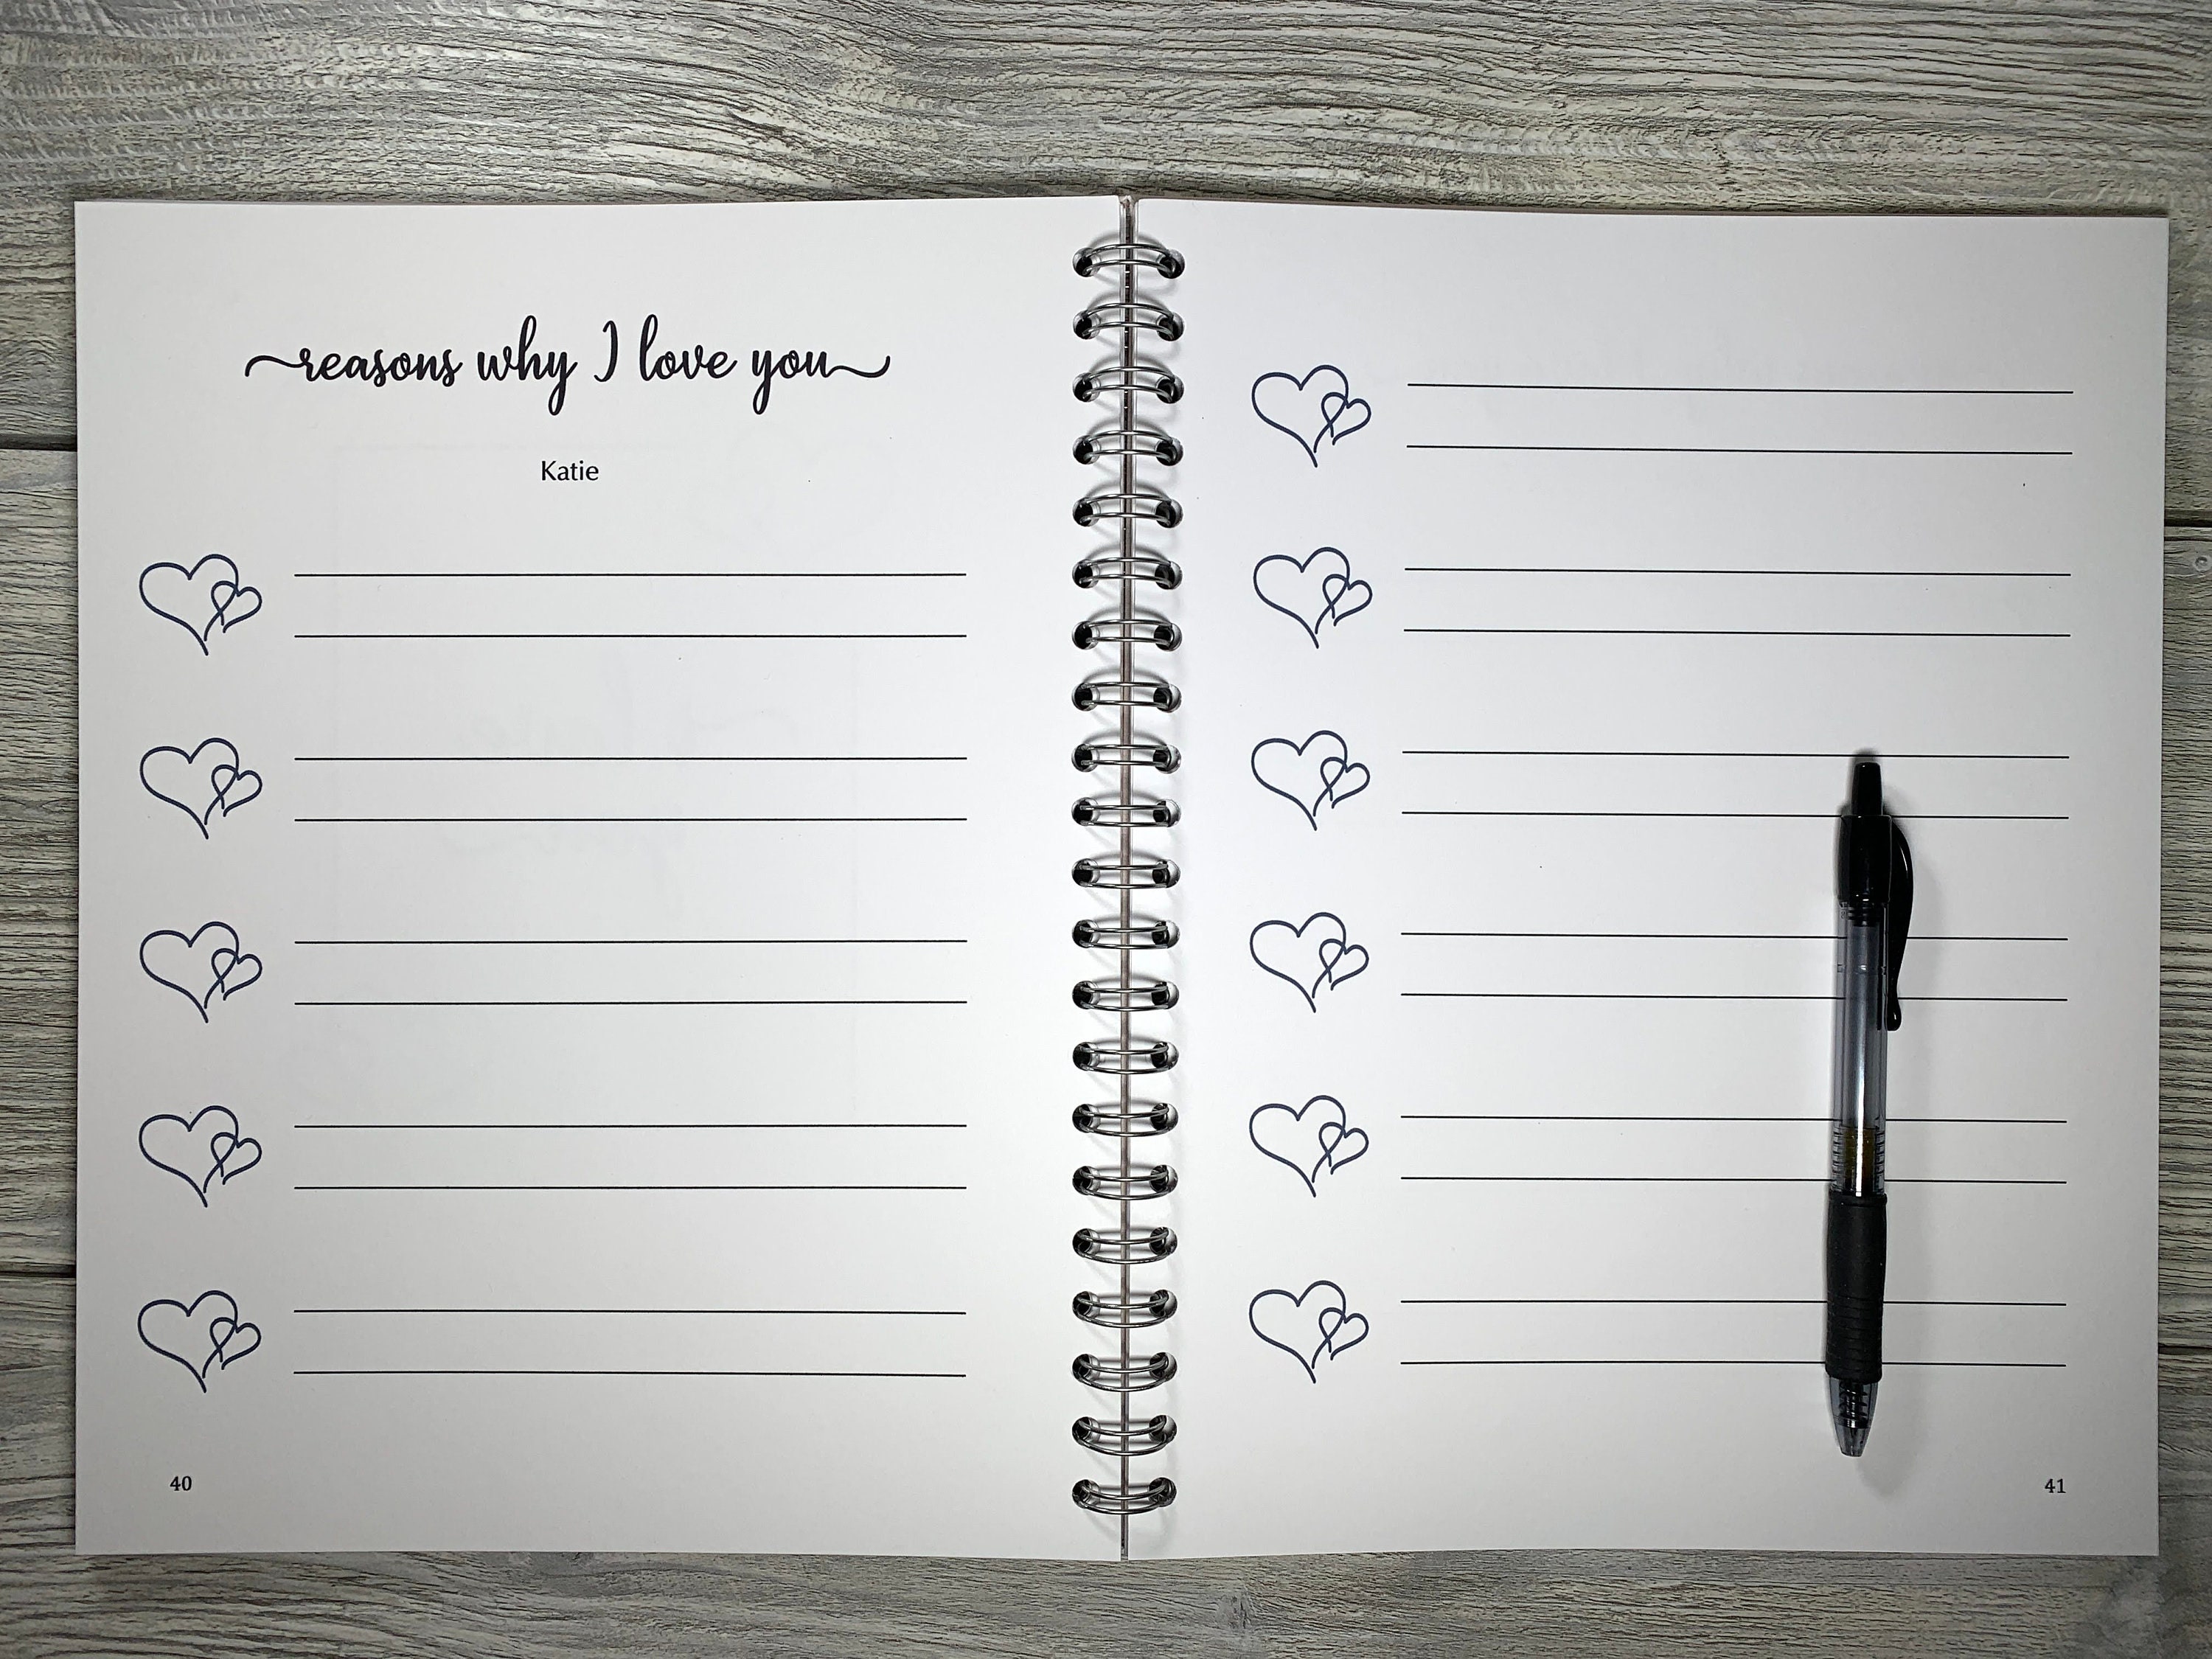 reasons why I love you
Katie
40
41